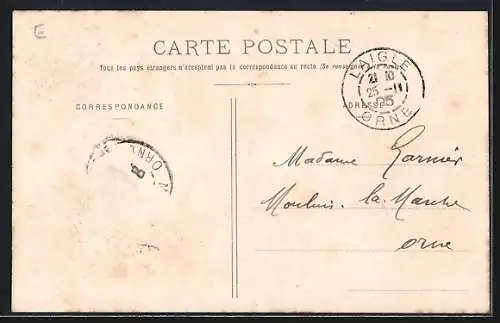 CARTE POSTALE
Tous les pays étrangers n'acceptent pas la correspondance au recto (Se renseigner
CORRESPONDANCE
ADRESSE
LAIGLE
21 10
25 -11
05
ORNE
ORNE
Madame Garnier
Moulins-la-Marche
Orne